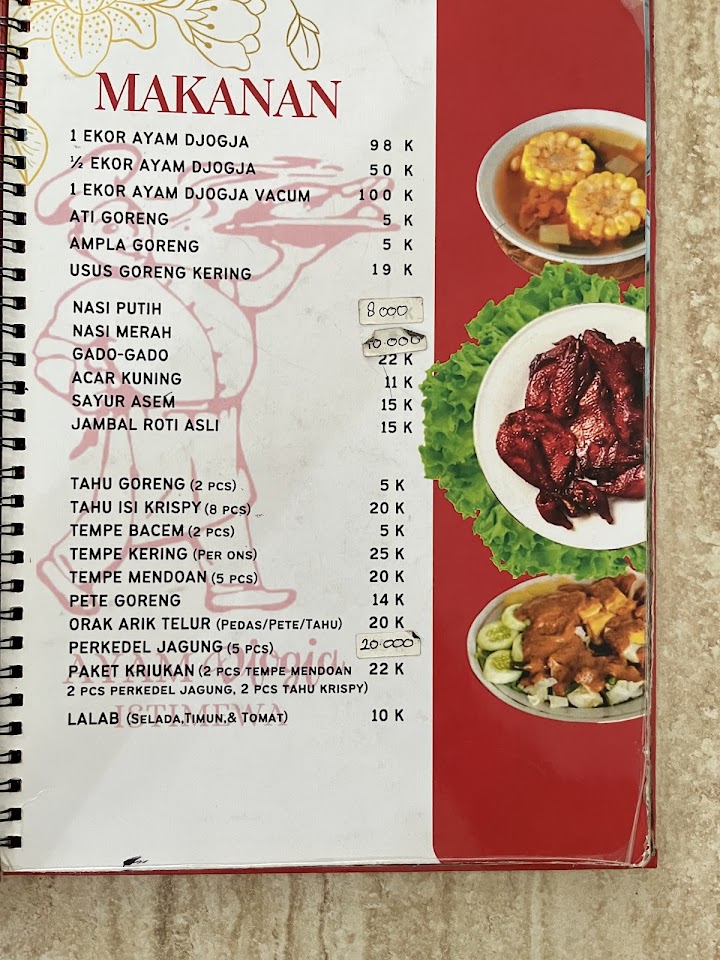 MAKANAN
1 EKOR AYAM DJOGJA 98 K
½ EKOR AYAM DJOGJA 50 K
1 EKOR AYAM DJOGJA VACUM 100 K
ATI GORENG 5 K
AMPLA GORENG 5 K
USUS GORENG KERING 19 K
NASI PUTIH 8000
NASI MERAH 10.000
GADO-GADO 22 K
ACAR KUNING 11 K
SAYUR ASEM 15 K
JAMBAL ROTI ASLI 15 K
TAHU GORENG (2 PCS) 5 K
TAHU ISI KRISPY (8 PCS) 20 K
TEMPE BACEM (2 PCS) 5 K
TEMPE KERING (PER ONS) 25 K
TEMPE MENDOAN (5 PCS) 20 K
PETE GORENG 14 K
ORAK ARIK TELUR (PEDAS/PETE/TAHU) 20 K
PERKEDEL JAGUNG (5 PCS) 20.000
PAKET KRIUKAN (2 PCS TEMPE MENDOAN 22 K
2 PCS PERKEDEL JAGUNG, 2 PCS TAHU KRISPY)
LALAB (SELADA,TIMUN,& TOMAT) 10 K
AYAM Djogja
ISTIMEWA